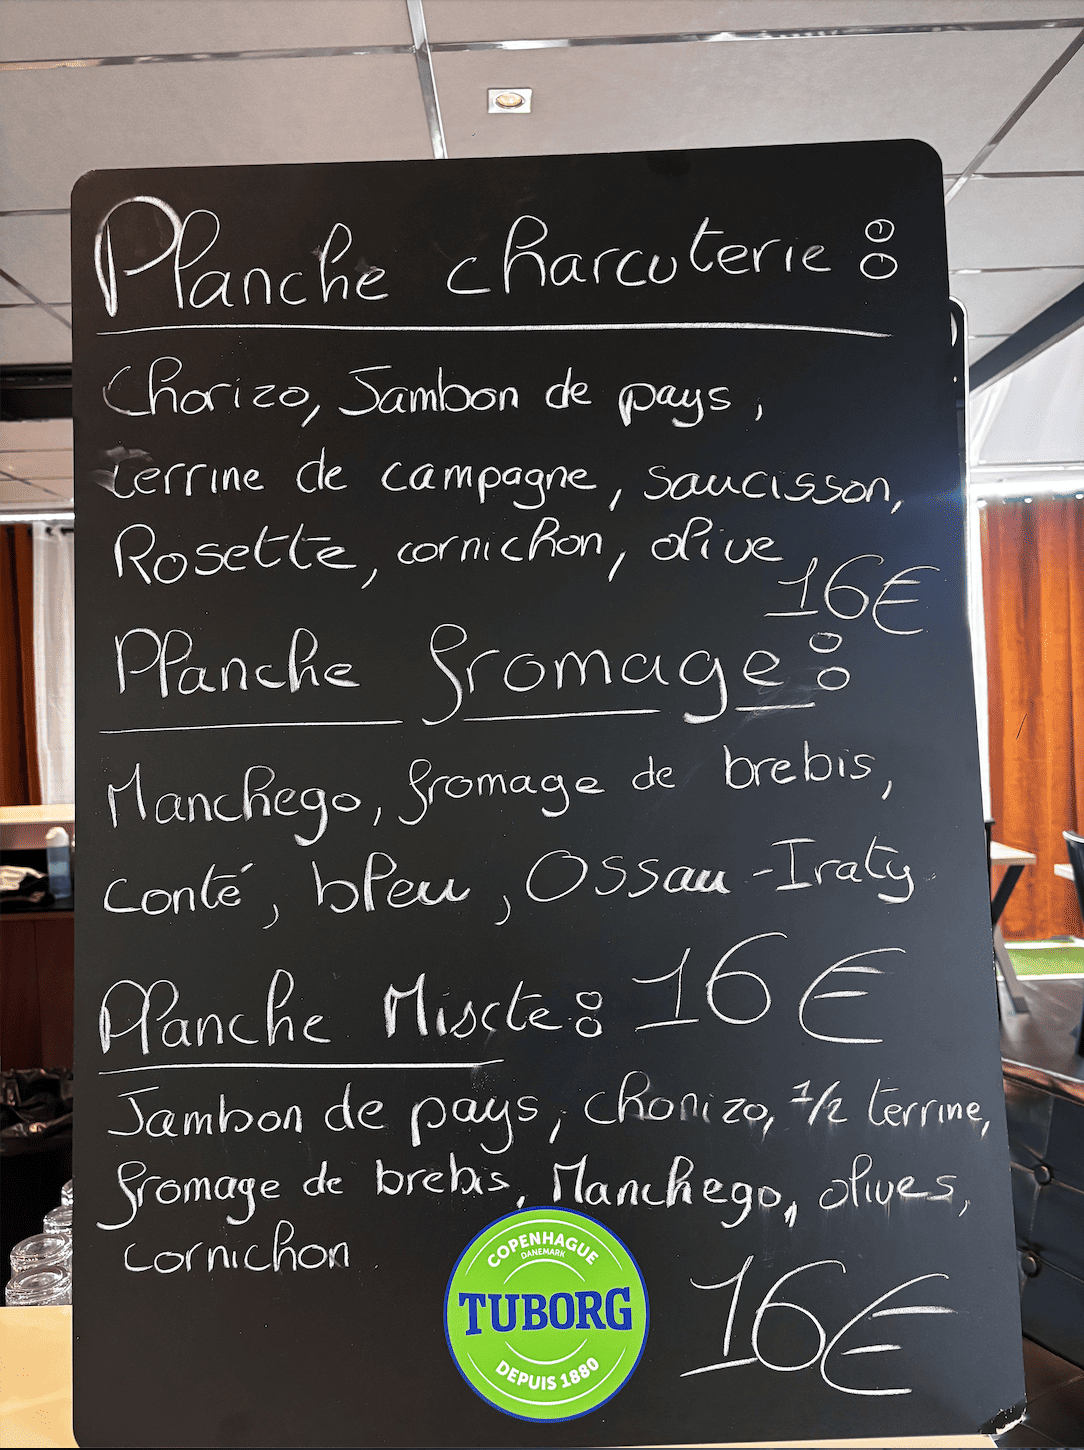 Planche charcuterie :
Chorizo, Jambon de pays,
terrine de campagne, saucisson,
Rosette, cornichon, olive
16€
Planche fromage :
Manchego, fromage de brebis,
conté, bleu, Ossau-Iraty
16€
Planche Miscte :
Jambon de pays, chorizo, 1/2 terrine,
fromage de brebis, Manchego, olives,
cornichon
16€
COPENHAGUE
DANEMARK
TUBORG
DEPUIS 1880